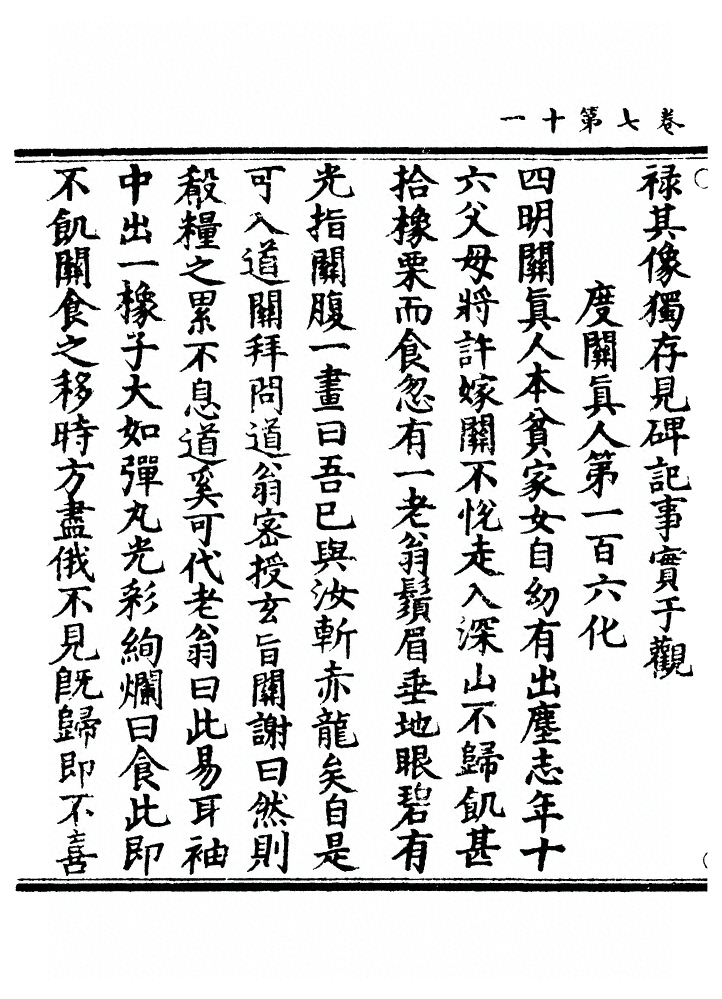 卷七第十一
禄其像獨存見碑記事實于觀
度關眞人第一百六化
四明關眞人本貧家女自幼有出塵志年十
六父母將許嫁關不悅走入深山不歸飢甚
拾橡栗而食忽有一老翁鬚眉垂地眼碧有
光指關腹一畫曰吾已與汝斬赤龍矣自是
可入道關拜問道翁密授玄旨關謝曰然則
糓糧之累不息道奚可代老翁曰此易耳袖
中出一橡子大如彈丸光彩絢爛曰食此即
不飢關食之移時方盡俄不見旣歸即不喜